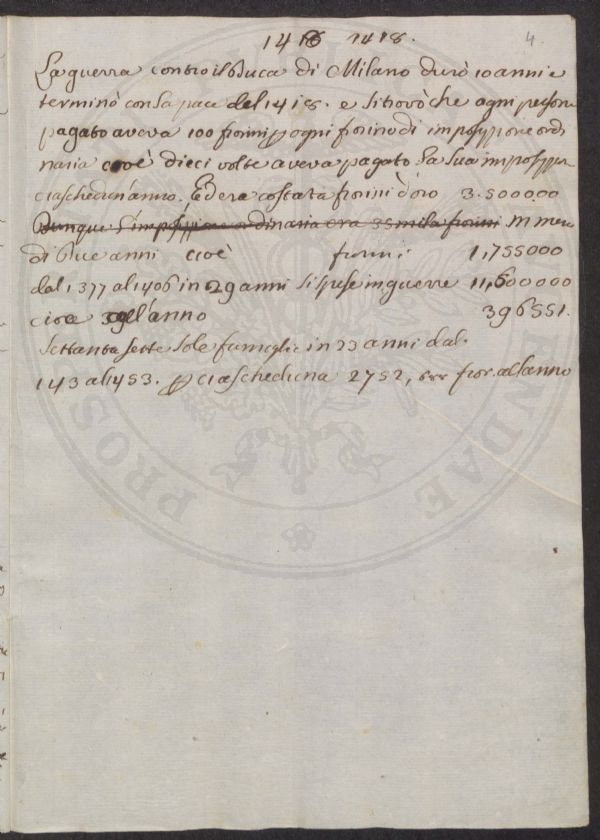 1416 1418.
4
La guerra contro il Duca di Milano durò 10 anni e
terminò con la pace del 1418. e si trovò che ogni persona
pagato aveva 100 fiorini p ogni fiorino di imposizione ordi
naria cioè dieci volte aveva pagato la sua imposizion
ciaschedun'anno. Ed era costata fiorini d'oro 3.500000
Dunque l'imposizione ordinaria era 35 mila fiorini In meno
di due anni cioè fiorini 1,755000
dal 1377 al 1406 in 29 anni si spese in guerre 11,600000
cioè all'anno 396551.
Settanta sette sole famiglie in 23 anni dal.
143 al 1453. p ciascheduna 2752, fior. all'anno
PROSSI ENDAE